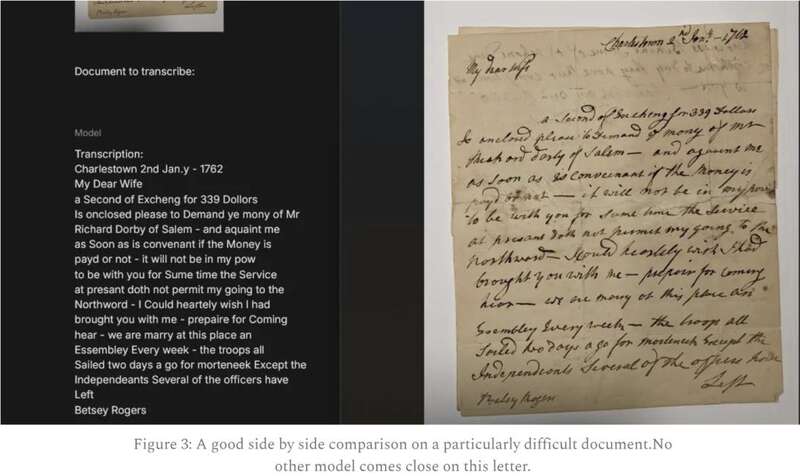 Document to transcribe:
Model
Transcription:
Charlestown 2nd Jan.y - 1762
My Dear Wife
a Second of Excheng for 339 Dollors
Is onclosed please to Demand ye mony of Mr
Richard Dorby of Salem - and aquaint me
as Soon as is convenant if the Money is
payd or not - it will not be in my pow
to be with you for Sume time the Service
at presant doth not permit my going to the
Northword - I Could heartely wish I had
brought you with me - prepaire for Coming
hear - we are marry at this place an
Essembley Every week - the troops all
Sailed two days a go for morteneek Except the
Independeants Several of the officers have
Left
Betsey Rogers
Charlestown 2nd Jany. - 1762
My dear Wife
a Second of Excheng for 339 Dollors
Is onclosed please to Demand ye mony of Mr
Richard Dorby of Salem - and aquaint me
as soon as is convenant if the Money is
payd or not - it will not be in my pow
to be with you for Sume time the Service
at presant doth not permit my going to the
Northword - I Could heartely wish I had
brought you with me - prepair for Coming
hear - we are marry at this place an
Essembley Every week - the troops all
Sailed two days a go for morteneek Except the
Independeants Several of the officers have
Left
Betsey Rogers
Figure 3: A good side by side comparison on a particularly difficult document.No
other model comes close on this letter.